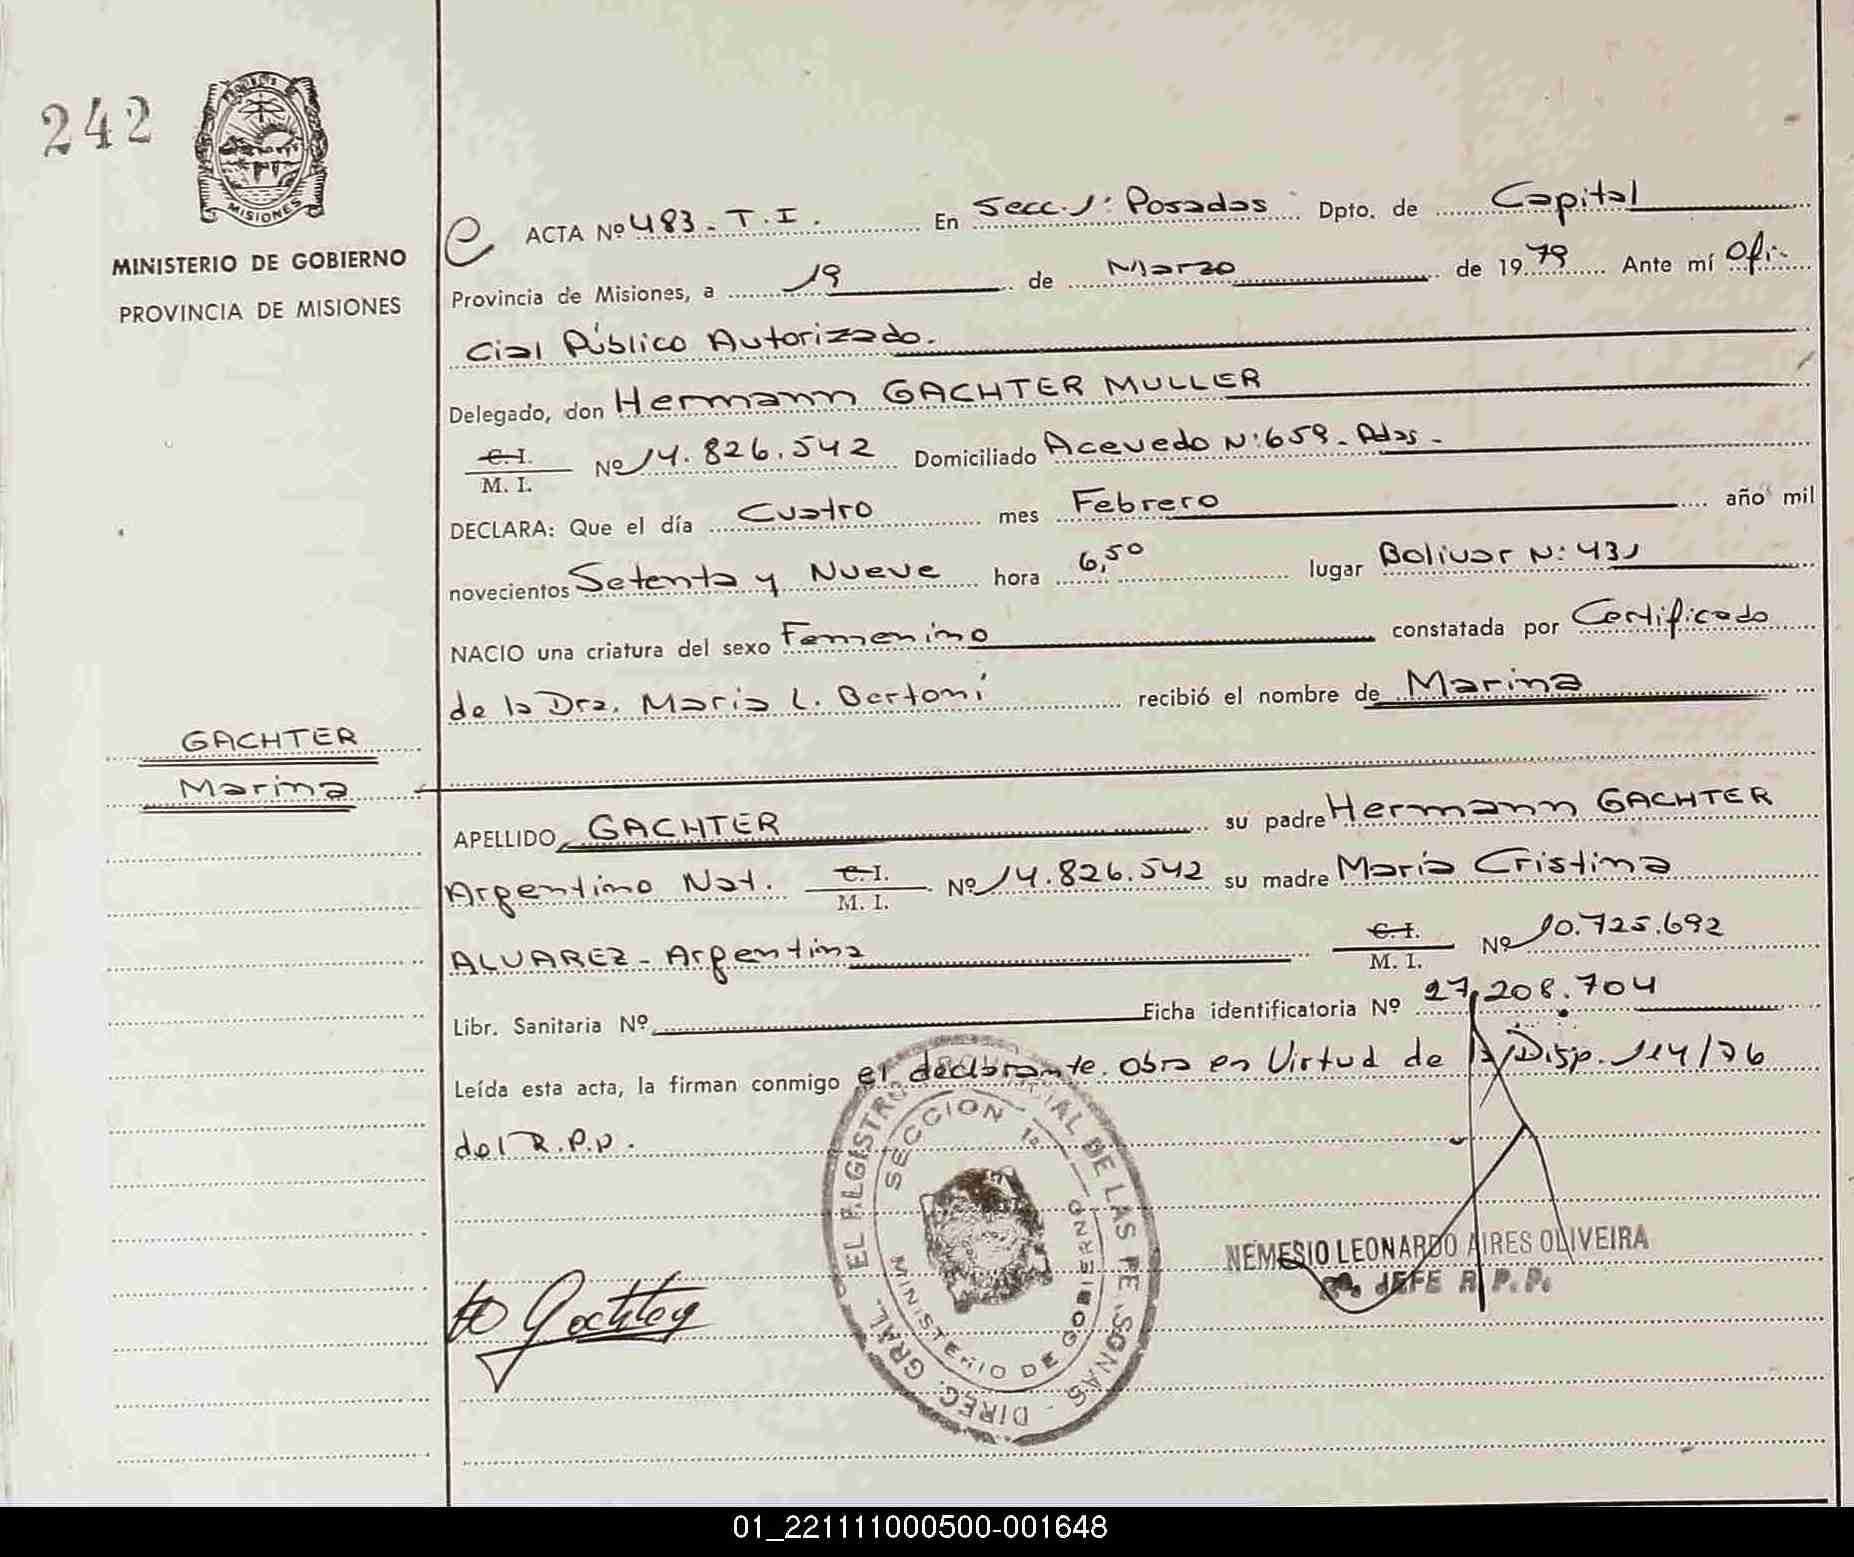 242
MISIONES
MINISTERIO DE GOBIERNO
PROVINCIA DE MISIONES
ACTA Nº 483-T.I. En Secc. 1ª Posadas Dpto. de Capital
Provincia de Misiones, a 19 de Marzo de 1979 Ante mí Ofi-
cial Público Autorizado.
Delegado, don Hermann GACHTER MULLER
C.I.
M. I. Nº 14.826.542 Domiciliado Acevedo Nº 659 - Pdas -
DECLARA: Que el día Cuatro mes Febrero año mil
novecientos Setenta y Nueve hora 6,50 lugar Bolivar Nº 431
NACIO una criatura del sexo Femenino constatada por Certificado
de la Dra. Maria L. Bertoni recibió el nombre de Marina
GACHTER
Marina
APELLIDO GACHTER su padre Hermann GACHTER
Argentino Nat. C.I. M. I. Nº 14.826.542 su madre María Cristina
ALVAREZ - Argentina C.I. M. I. Nº 10.725.692
Libr. Sanitaria Nº Ficha identificatoria Nº 27.208.704
Leída esta acta, la firman conmigo el declarante. Obra en Virtud de la Disp. 114/76
del R.P.P.
DIREC. GRAL. EL REGISTRO DE LAS PERSONAS
SECCION 1ª
MINISTERIO DE GOBIERNO
NEMESIO LEONARDO AIRES OLIVEIRA
JEFE R.P.P.
Gachter
01_221111000500-001648